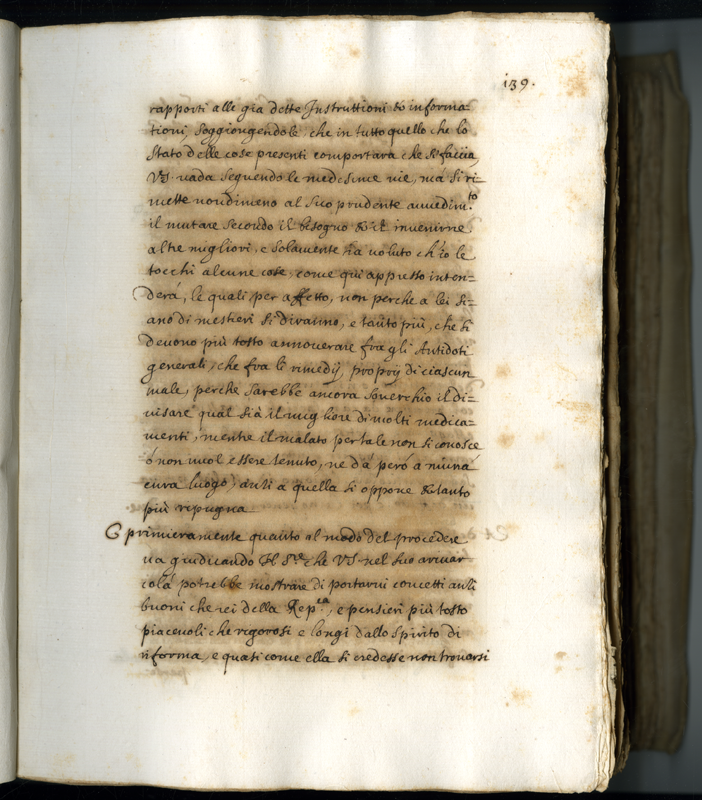 139.
rapporti alle gia dette Instruttioni et informa=
tioni, soggiongendole, che in tutto quello che lo
stato delle cose presenti comportarà che si faccia,
VS. uada seguendo le medesime uie, mà si ri=
mette nondimeno al suo prudente auuedim.to
il mutare secondo il bisogno et il inuenirne
altre migliori, e solamente ha uoluto ch'io le
tocchi alcune cose, come qui appresso inten=
derà, le quali, per affetto, non perche a lei si=
ano di mestieri si diranno, e tanto più, che si
deuono più tosto annouerare fra gli Antidoti
generali, che fra li rimedij proprij di ciascun
male, perche sarebbe ancora souerchio il di=
uisare qual sia il migliore di molti medica=
menti, mentre il malato per tale non si conosce
ò non uuol essere tenuto, ne dà però a niuna
cura luogo, anzi a quella si oppone et tanto
più ripugna
E primieramente quanto al modo del procedere
ua giudicando Il S.re che VS. nel suo arriuar
colà potrebbe mostrare di portarui concetti anzi
buoni che rei della Rep.ca, e pensieri più tosto
piaceuoli che rigorosi e longi dallo spirito di
riforma, e quasi come ella si credesse non trouarsi